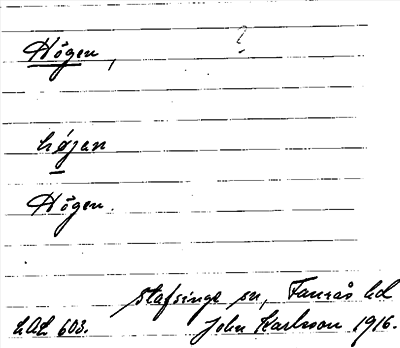 Högen, ?
højen
Högen.
Stafsinge sn, Faurås hd
LAL 603. John Karlsson 1916.